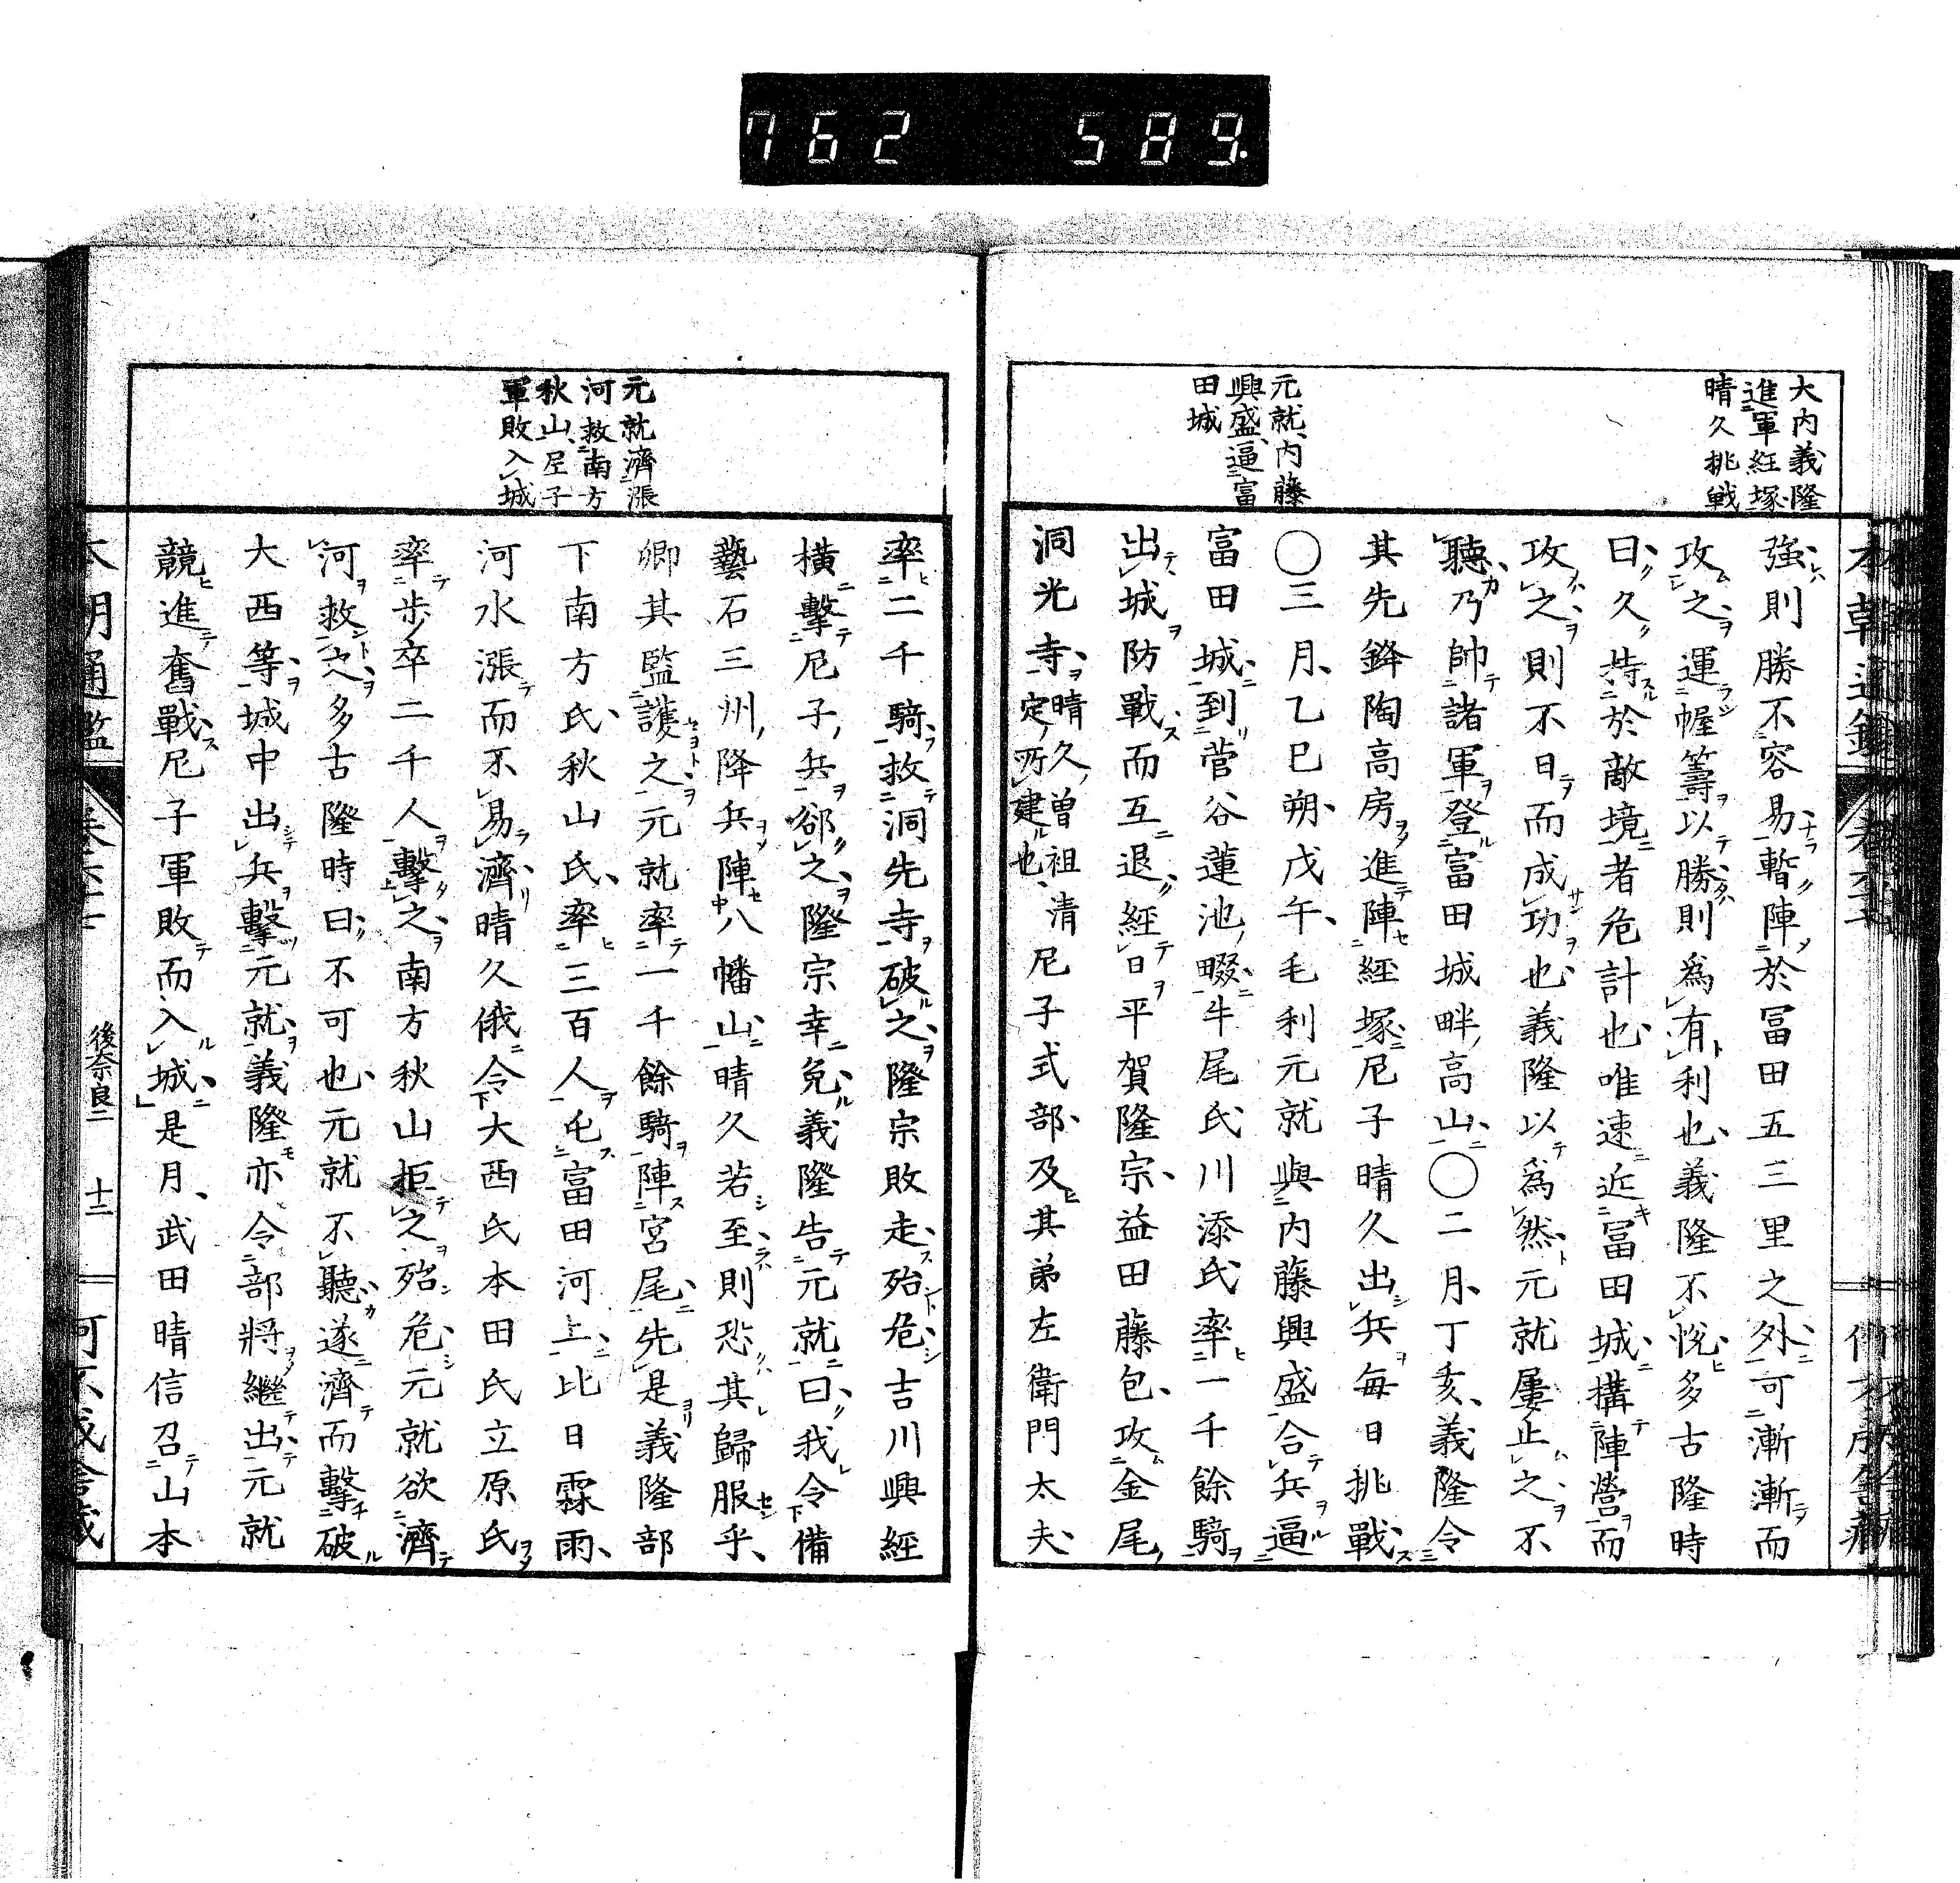 762 589.
大内義隆
進軍経塚
晴久挑戦
元就内藤
興盛逼富
田城
強則勝不容易暫陣於冨田五三里之外可漸漸而
攻之運幄籌以勝則為有利也義隆不悦多古隆時
曰久恃於敵境者危計也唯速近冨田城構陣營而
攻之則不日而成功也義隆以為然元就屢止之不
聽乃帥諸軍登富田城畔高山〇二月丁亥義隆令
其先鋒陶高房進陣經塚尼子晴久出兵每日挑戰
〇三月乙巳朔戊午毛利元就與内藤興盛合兵逼
富田城到菅谷蓮池畷牛尾氏川添氏率一千餘騎
出城防戰而互退經日平賀隆宗益田藤包攻金尾
洞光寺晴久曽祖清定所建也尼子式部及其弟左衛門太夫
元就濟漲
河救南方
秋山尼子
軍敗入城
率二千騎救洞光寺破之隆宗敗走殆危吉川興經
橫擊尼子兵郤之隆宗幸免義隆告元就曰我令備
藝石三州降兵陣八幡山晴久若至則恐其歸服乎
卿其監護之元就率一千餘騎陣宮尾先是義隆部
下南方氏秋山氏率三百人屯富田河上比日霖雨
河水漲而不易濟晴久俄令大西氏本田氏立原氏
率歩卒二千人擊之南方秋山拒之殆危元就欲濟
河救之多古隆時曰不可也元就不聽遂濟而擊破
大西等城中出兵擊元就義隆亦令部將繼出元就
競進奮戰尼子軍敗而入城是月武田晴信召山本
後奈良二 十二